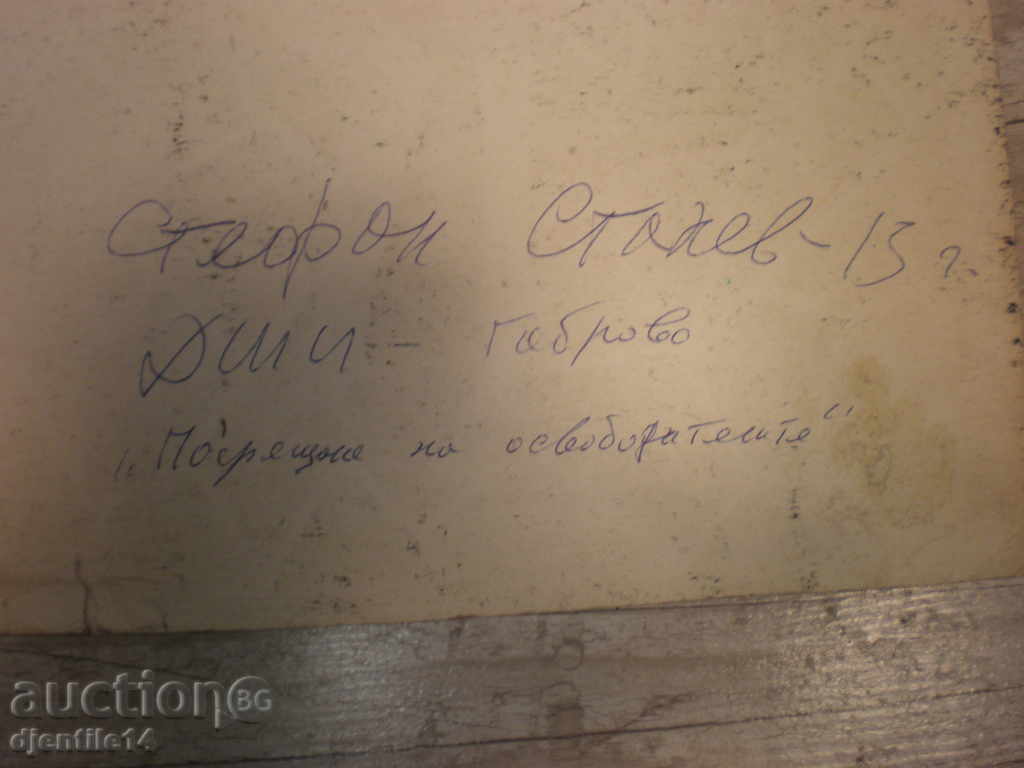 Стефан Стачев - 13 г.
ДШИ - Габрово
„Посрещане на освободителите“
auctionBG
djentile14